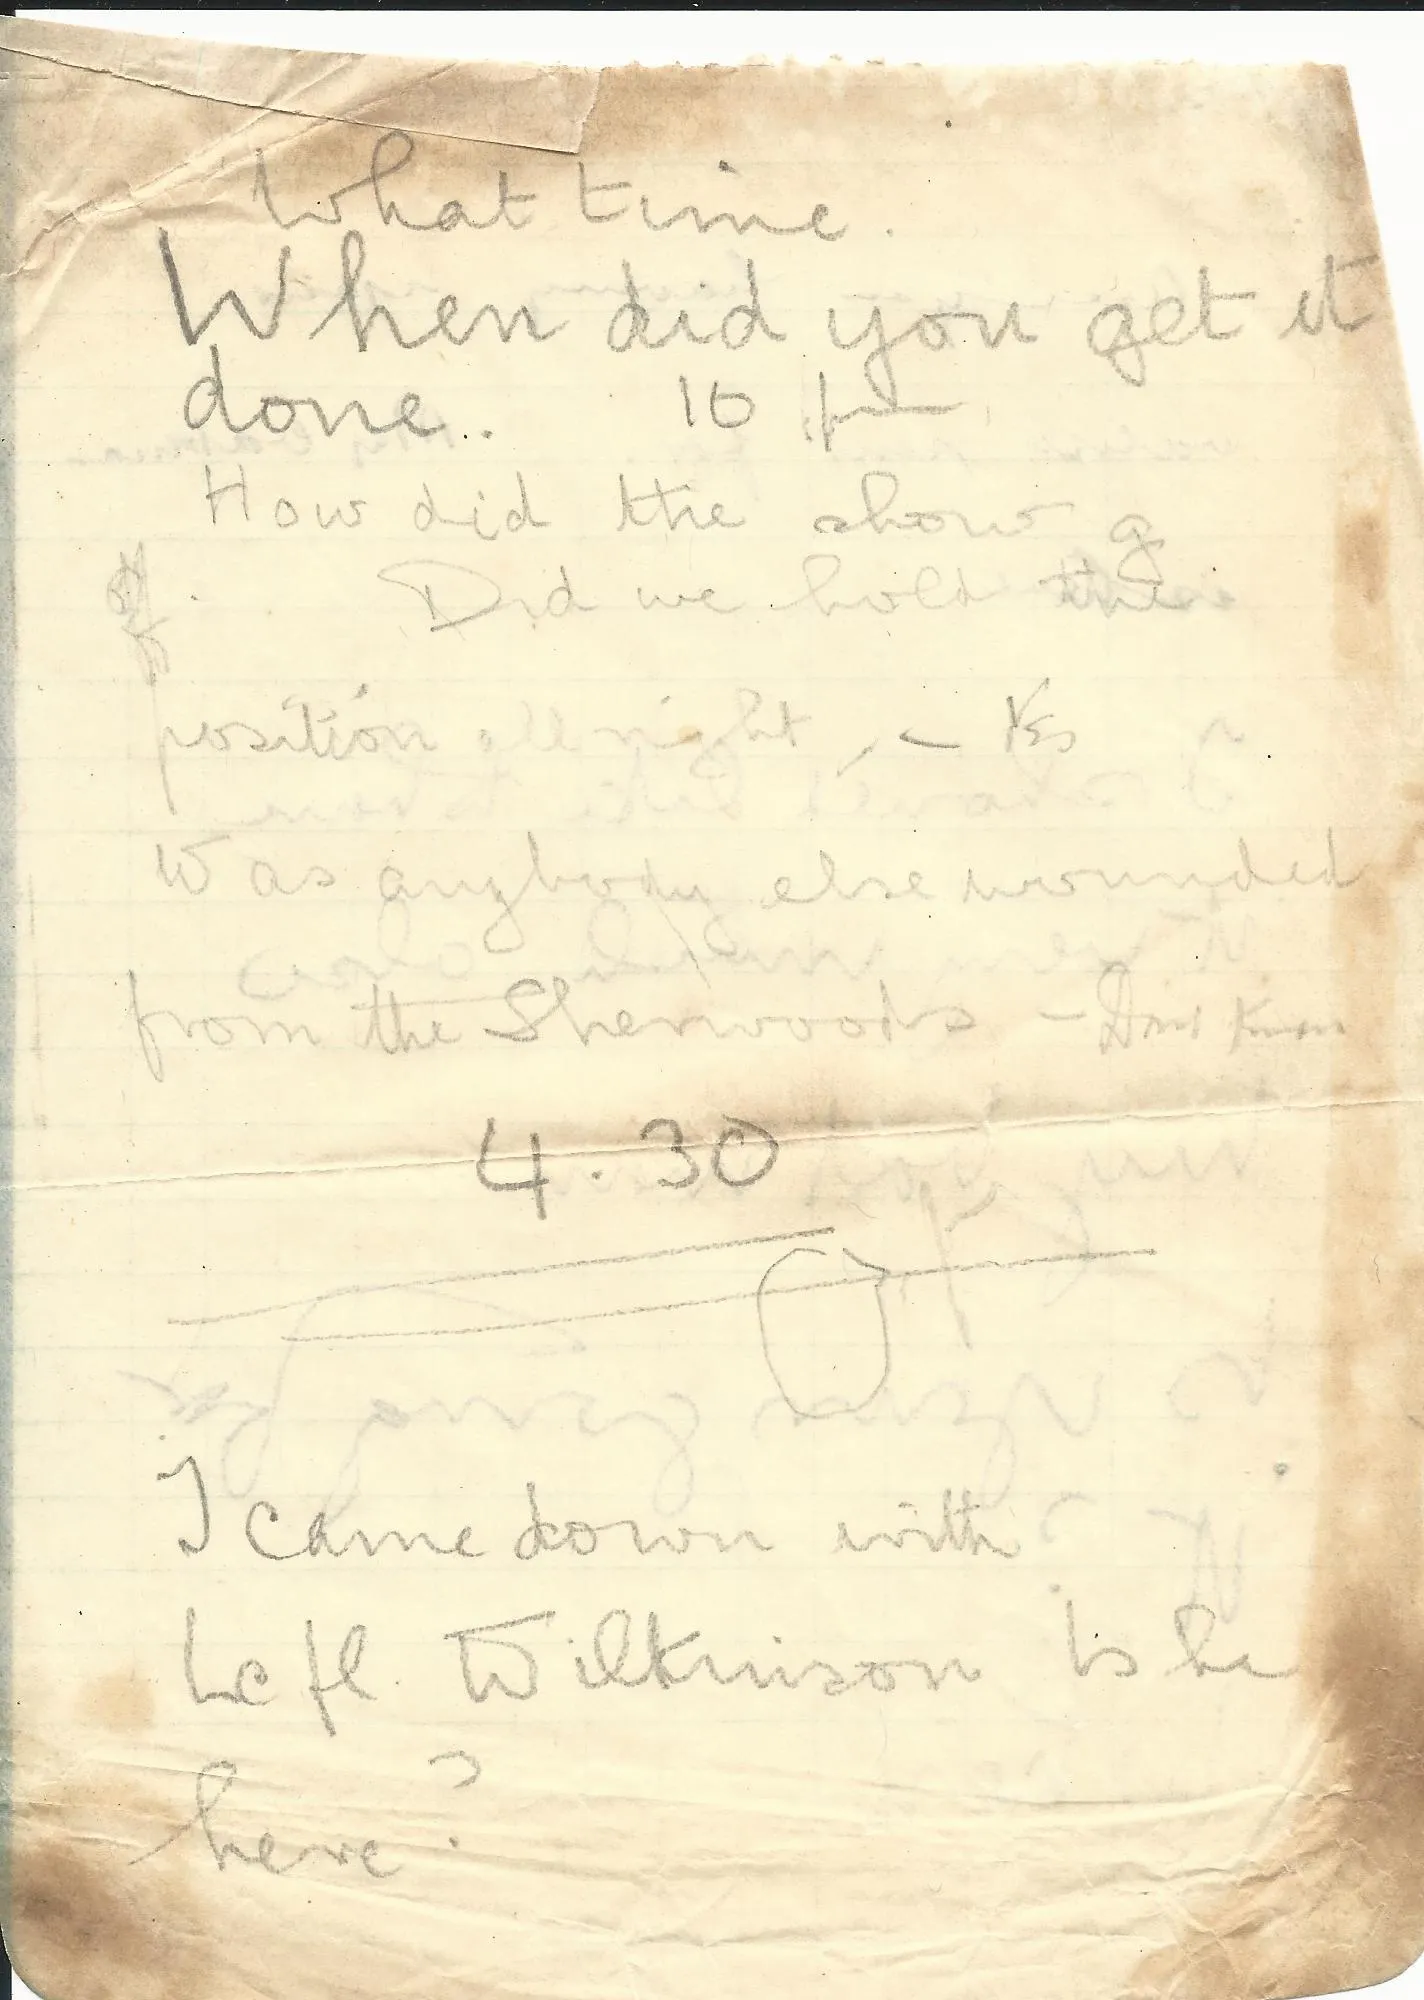 What time.
When did you get it
done.. 10 pm
How did the show g
Did we hold the
position all night, – Yes
Was anybody else wounded
from the Sherwoods – Dont Know
4.30
I came down with
Lc pl. Wilkinson Is he
here?